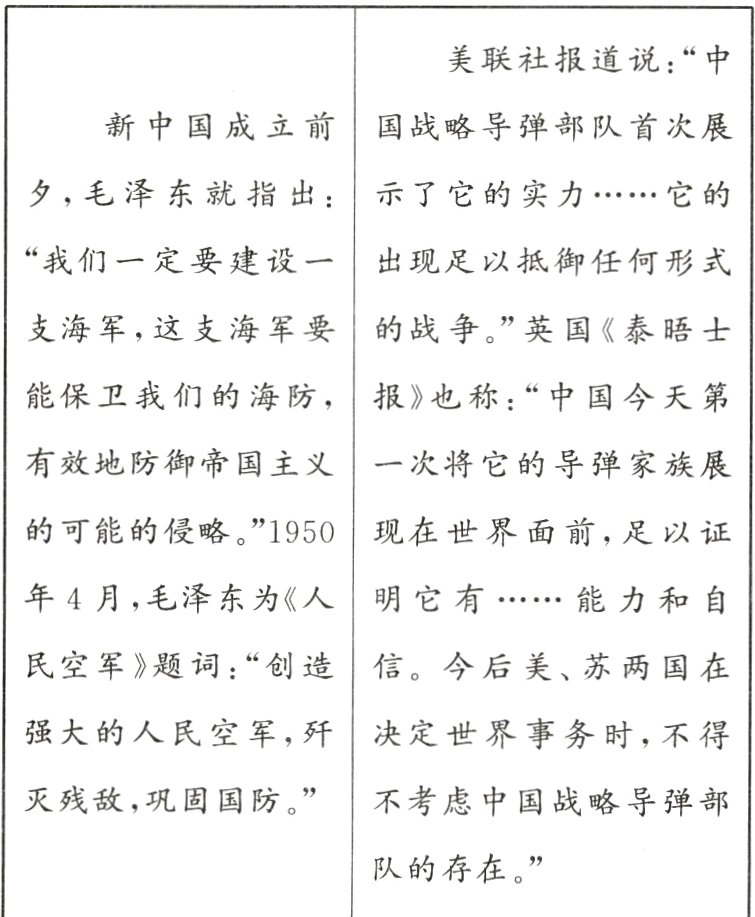 新中国成立前
夕，毛泽东就指出：
“我们一定要建设一
支海军，这支海军要
能保卫我们的海防，
有效地防御帝国主义
的可能的侵略。”1950
年 4 月，毛泽东为《人
民空军》题词：“创造
强大的人民空军，歼
灭残敌，巩固国防。”
美联社报道说：“中
国战略导弹部队首次展
示了它的实力……它的
出现足以抵御任何形式
的战争。”英国《泰晤士
报》也称：“中国今天第
一次将它的导弹家族展
现在世界面前，足以证
明它有……能力和自
信。今后美、苏两国在
决定世界事务时，不得
不考虑中国战略导弹部
队的存在。”